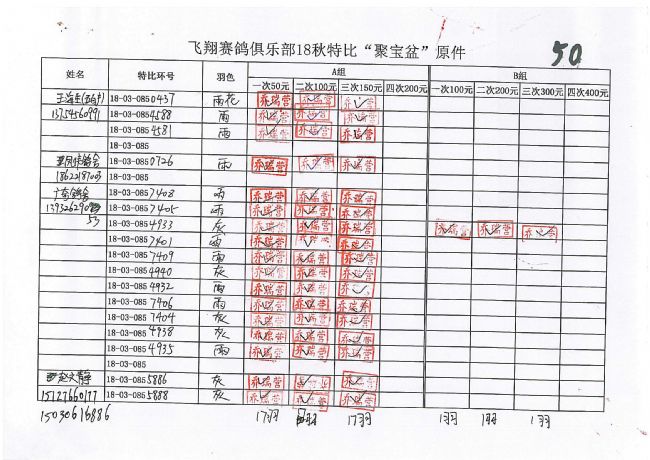 飞翔赛鸽俱乐部18秋特比“聚宝盆”原件
50
姓名 特比环号 羽色 A组 B组
一次50元 二次100元 三次150元 四次200元 一次100元 二次200元 三次300元 四次400元
18-03-0850437 雨花 乔瑞营 乔瑞营 乔瑞营
13754560991 18-03-0854588 雨 乔瑞营 乔瑞营 乔瑞营
18-03-0854581 雨 乔瑞营 乔瑞营 乔瑞营
18-03-085
18-03-0850726 雨 乔瑞营 乔瑞营 乔瑞营
18-03-085
18-03-0857408 雨 乔瑞营 乔瑞营 乔瑞营
18-03-0857405 雨 乔瑞营 乔瑞营 乔瑞营
53 18-03-0854933 灰 乔瑞营 乔瑞营 乔瑞营 乔瑞营 乔瑞营 乔瑞营
18-03-0857401 雨 乔瑞营 乔瑞营 乔瑞营
18-03-0857409 雨 乔瑞营 乔瑞营 乔瑞营
18-03-0854940 灰 乔瑞营 乔瑞营 乔瑞营
18-03-0854932 雨 乔瑞营 乔瑞营 乔瑞营
18-03-0857406 雨 乔瑞营 乔瑞营 乔瑞营
18-03-0857404 灰 乔瑞营 乔瑞营 乔瑞营
18-03-0854938 灰 乔瑞营 乔瑞营 乔瑞营
18-03-0854935 雨 乔瑞营 乔瑞营 乔瑞营
18-03-085
赵文静 18-03-0855886 灰 乔瑞营 乔瑞营 乔瑞营
15127660177 18-03-0855888 灰 乔瑞营 乔瑞营 乔瑞营
15030616886 17羽 17羽 1羽 1羽 1羽